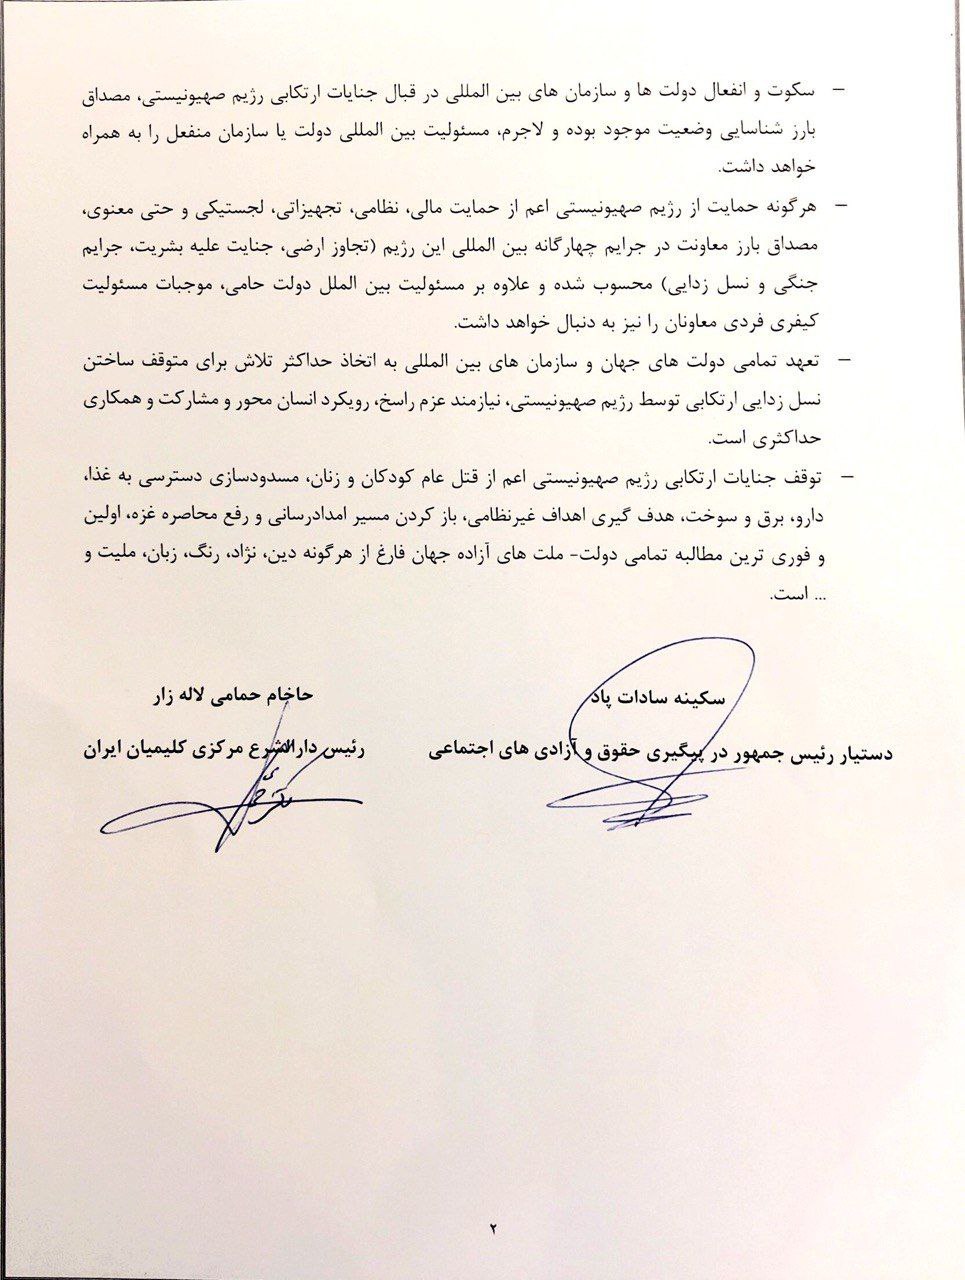 – سکوت و انفعال دولت ها و سازمان های بین المللی در قبال جنایات ارتکابی رژیم صهیونیستی، مصداق
بارز شناسایی وضعیت موجود بوده و لاجرم، مسئولیت بین المللی دولت یا سازمان منفعل را به همراه
خواهد داشت.
– هرگونه حمایت از رژیم صهیونیستی اعم از حمایت مالی، نظامی، تجهیزاتی، لجستیکی و حتی معنوی،
مصداق بارز معاونت در جرایم چهارگانه بین المللی این رژیم (تجاوز ارضی، جنایت علیه بشریت، جرایم
جنگی و نسل زدایی) محسوب شده و علاوه بر مسئولیت بین الملل دولت حامی، موجبات مسئولیت
کیفری فردی معاونان را نیز به دنبال خواهد داشت.
– تعهد تمامی دولت های جهان و سازمان های بین المللی به اتخاذ حداکثر تلاش برای متوقف ساختن
نسل زدایی ارتکابی توسط رژیم صهیونیستی، نیازمند عزم راسخ، رویکرد انسان محور و مشارکت و همکاری
حداکثری است.
– توقف جنایات ارتکابی رژیم صهیونیستی اعم از قتل عام کودکان و زنان، مسدودسازی دسترسی به غذا،
دارو، برق و سوخت، هدف گیری اهداف غیرنظامی، باز کردن مسیر امدادرسانی و رفع محاصره غزه، اولین
و فوری ترین مطالبه تمامی دولت- ملت های آزاده جهان فارغ از هرگونه دین، نژاد، رنگ، زبان، ملیت و
... است.
سکینه سادات پاد
دستیار رئیس جمهور در پیگیری حقوق و آزادی های اجتماعی
حاخام حمامی لاله زار
رئیس دارالشرع مرکزی کلیمیان ایران
۲